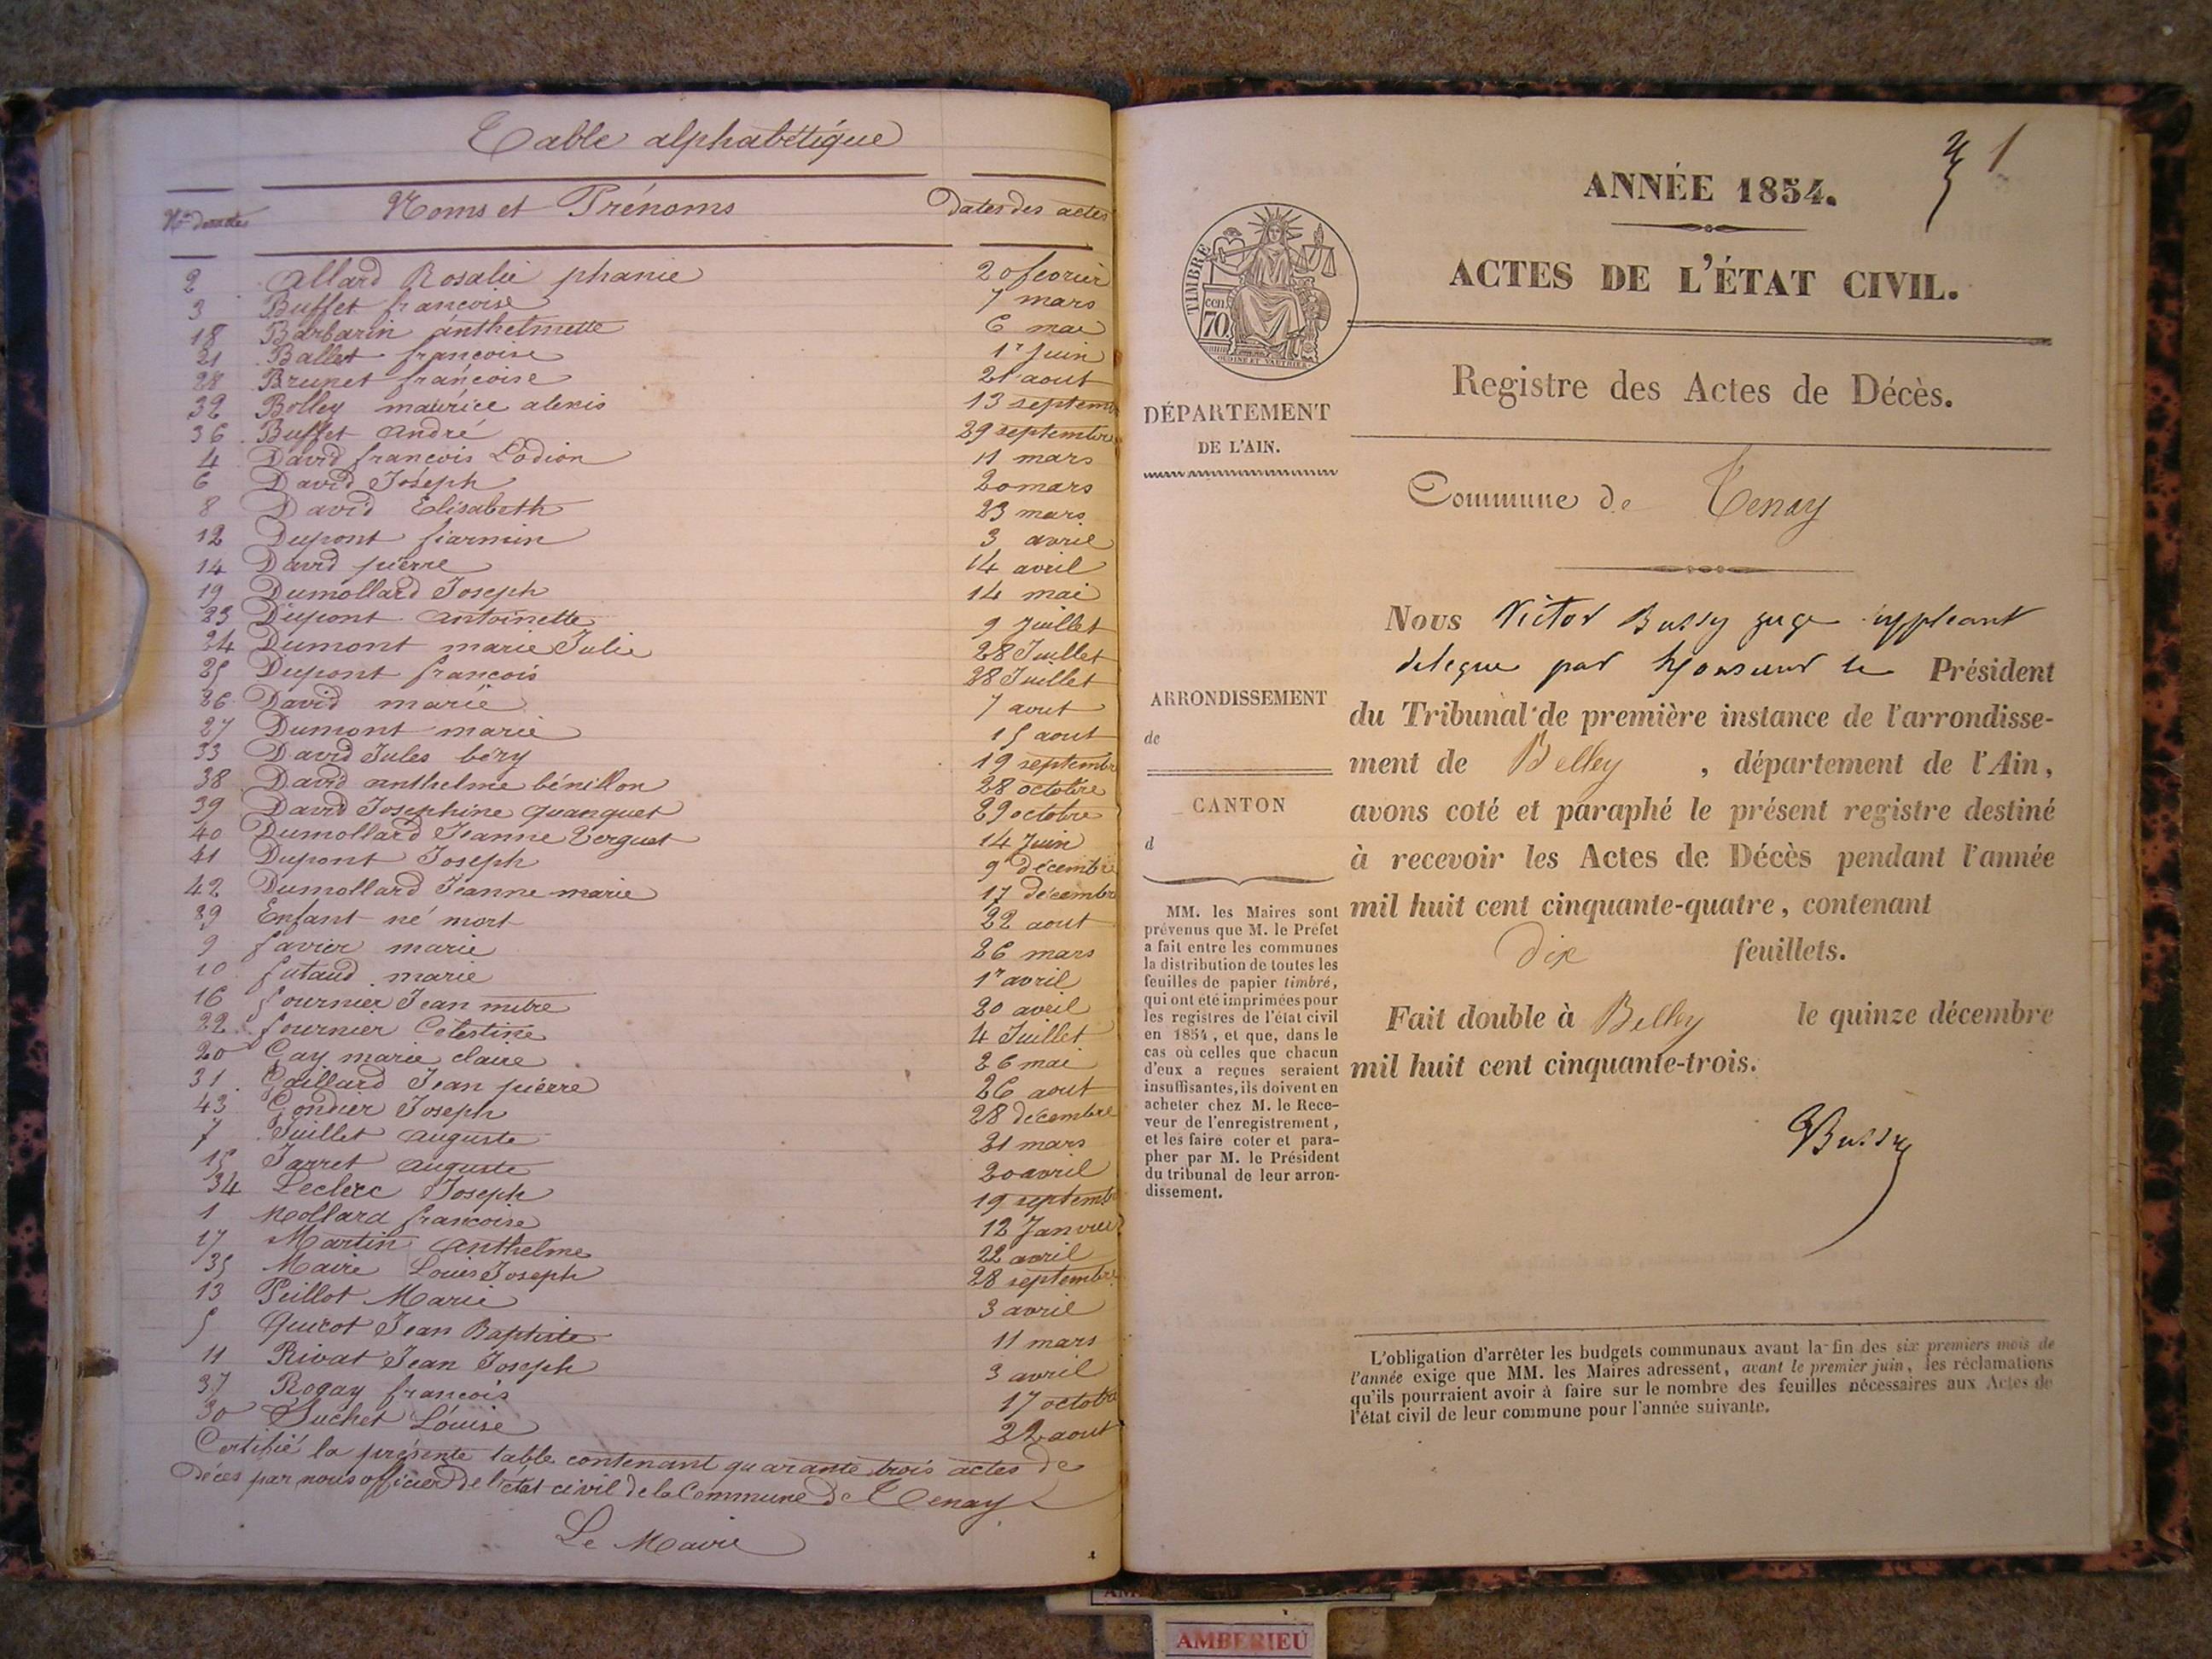 Table alphabétique
Nos d'actes Noms et Prénoms Dates des actes
2 Allard Rosalie phanie 20 fevrier
3 Buffet francoise 7 mars
18 Barbarin anthelmette 6 mai
21 Ballet francoise 1r Juin
28 Brunet francoise 21 aout
32 Bolley maurice alexis 13 septemb
36 Buffet André 29 septembre
4 David francois Lodion 11 mars
6 David Joseph 20 mars
8 David Elisabeth 23 mars
12 Dupont fiarmin 3 avril
14 David pierre 14 avril
19 Dumollard Joseph 14 mai
23 Dupont Antoinette 9 Juillet
24 Dumont marie Julie 28 Juillet
25 Dupont francois 28 Juillet
26 David marie 7 aout
27 Dumont marie 15 aout
33 David Jules béry 19 septembr
38 David anthelme bénillon 28 octobre
39 David Josephine quanquet 29 octobre
40 Dumollard Jeanne 14 Juin
41 Dupont Joseph 9 décembre
42 Dumollard Jeanne marie 17 decembre
29 Enfant né mort 22 aout
9 favier marie 26 mars
10 futaud marie 1r avril
16 fournier Jean mitre 20 avril
22 fournier Celestine 4 Juillet
20 Gay marie claire 26 mai
31 Gaillard Jean pierre 26 aout
43 Gondier Joseph 28 decembre
7 Juillet auguste 21 mars
15 Jarret auguste 20 avril
34 Leclerc Joseph 19 septemb
1 Mollard francoise 12 Janvier
17 Martin Anthelme 22 avril
35 Maire Louis Joseph 28 septembre
13 Peillot Marie 3 avril
5 Quicot Jean Baptiste 11 mars
11 Rivat Jean Joseph 3 avril
37 Rogay francois 17 octobre
30 Suchet Louise 22 aout
Certifié la présente table contenant quarante trois actes de
décès par nous officier de l'état civil de la Commune de Tenay
Le Maire
1
ANNÉE 1854.
ACTES DE L'ÉTAT CIVIL.
TIMBRE
cen.
70
OUDINÉ ET VAUTHIER
Registre des Actes de Décès.
DÉPARTEMENT
DE L'AIN.
Commune de Tenay
Nous Victor Bussy juge suppleant
delegue par Monsieur le Président
du Tribunal de première instance de l'arrondisse-
ment de Belley , département de l'Ain,
avons coté et paraphé le présent registre destiné
à recevoir les Actes de Décès pendant l'année
mil huit cent cinquante-quatre, contenant
dix feuillets.
Fait double à Belley le quinze décembre
mil huit cent cinquante-trois.
Bussy
ARRONDISSEMENT
de
CANTON
d
MM. les Maires sont
prévenus que M. le Préfet
a fait entre les communes
la distribution de toutes les
feuilles de papier timbré,
qui ont été imprimées pour
les registres de l'état civil
en 1854, et que, dans le
cas où celles que chacun
d'eux a reçues seraient
insuffisantes, ils doivent en
acheter chez M. le Rece-
veur de l'enregistrement,
et les faire coter et para-
pher par M. le Président
du tribunal de leur arron-
dissement.
L'obligation d'arrêter les budgets communaux avant la fin des six premiers mois de
l'année exige que MM. les Maires adressent, avant le premier juin, les réclamations
qu'ils pourraient avoir à faire sur le nombre des feuilles nécessaires aux Actes de
l'état civil de leur commune pour l'année suivante.
AMBERIEU